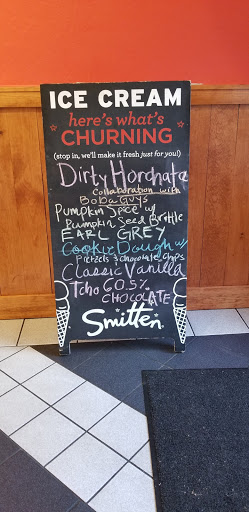 ICE CREAM
here's what's
CHURNING
(stop in, we'll make it fresh just for you!)
Dirty Horchata
Collaboration with
Boba Guys
Pumpkin Spice w/
Pumpkin Seed Brittle
EARL GREY
Cookie Dough w/
Pretzels & Chocolate Chips
Classic Vanilla
Tcho 60.5%
CHOCOLATE
Smitten